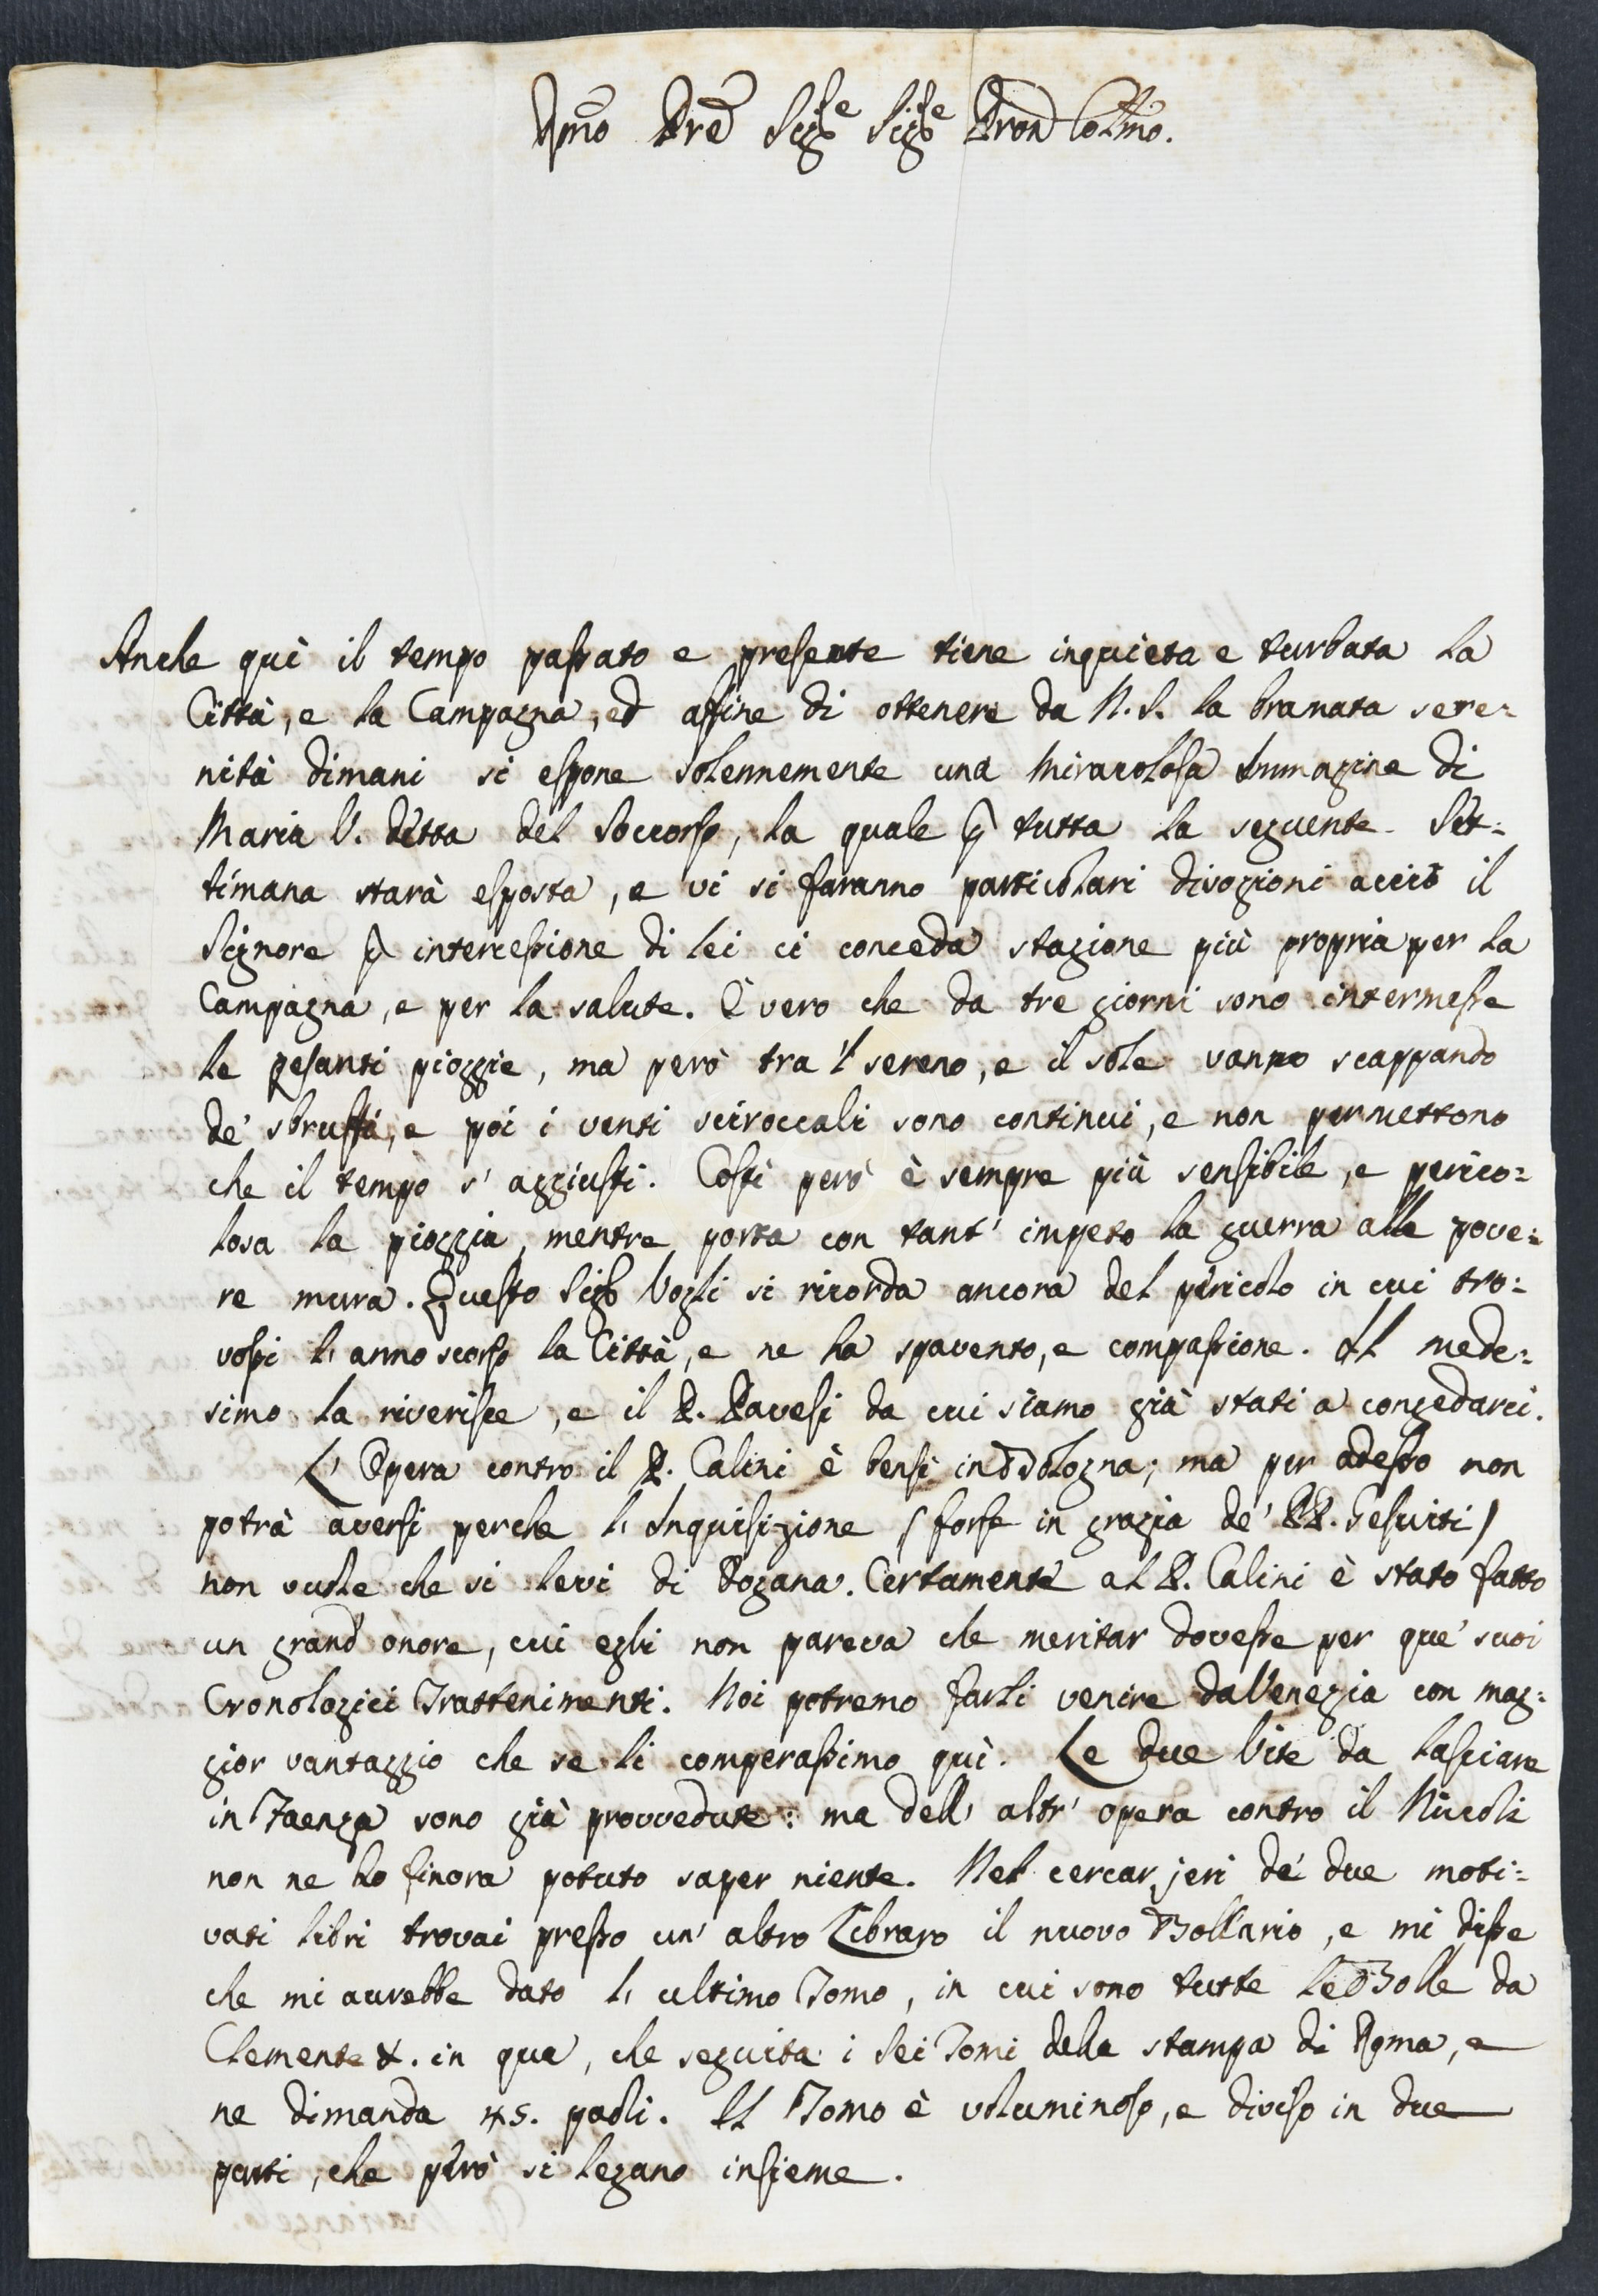 Rmo Pre Sigre Sigre Pron Colmo.
Anche quì il tempo passato e presente tiene inquieta e turbata la
Città, e la Campagna, ed affine di ottenere da N.S. la bramata sere=
nità dimani si espone solennemente una Miracolosa Immagine di
Maria V. detta del Soccorso, la quale p tutta la seguente Set=
timana starà esposta, e vi si faranno particolari divozioni acciò il
Signore p intercessione di lei ci conceda stagione più propria per la
Campagna, e per la salute. È vero che da tre giorni sono intermesse
le pesanti pioggie, ma però tra 'l sereno, e il sole vanno scappando
de' sbruffi, e poi i venti sciroccali sono continui, e non permettono
che il tempo s' aggiusti. Costì però è sempre più sensibile, e perico=
losa la pioggia, mentre porta con tant' impeto la guerra alle pove=
re mura. Questo Sigr Vogli si ricorda ancora del pericolo in cui tro=
vossi l' anno scorso la Città, e ne ha spavento, e compassione. Il mede=
simo la riverisce, e il P. Pavesi da cui siamo già stati a congedarci.
L' Opera contro il P. Calini è bensì in Bologna; ma per adesso non
potrà aversi perche l' Inquisizione (forse in grazia de' PP. Gesuiti)
non vuole che si levi di Dogana. Certamente al P. Calini è stato fatto
un grand' onore, cui egli non pareva che meritar dovesse per que' suoi
Cronologici Trattenimenti. Noi potremo farli venire da Venezia con mag=
gior vantaggio che se li comperassimo quì. Le due Vite da lasciare
in Faenza sono già provvedute: ma dell' altr' opera contro il Niccoli
non ne ho finora potuto saper niente. Nel cercar jeri de' due moti=
vati libri trovai presso un' altro Libraro il nuovo Bollario, e mi disse
che mi avrebbe dato l' ultimo Tomo, in cui sono tutte le Bolle da
Clemente X. in qua, che seguita i sei Tomi della stampa di Roma, e
ne dimanda 45. paoli. Il Tomo è voluminoso, e diviso in due
parti, che però si legano insieme.